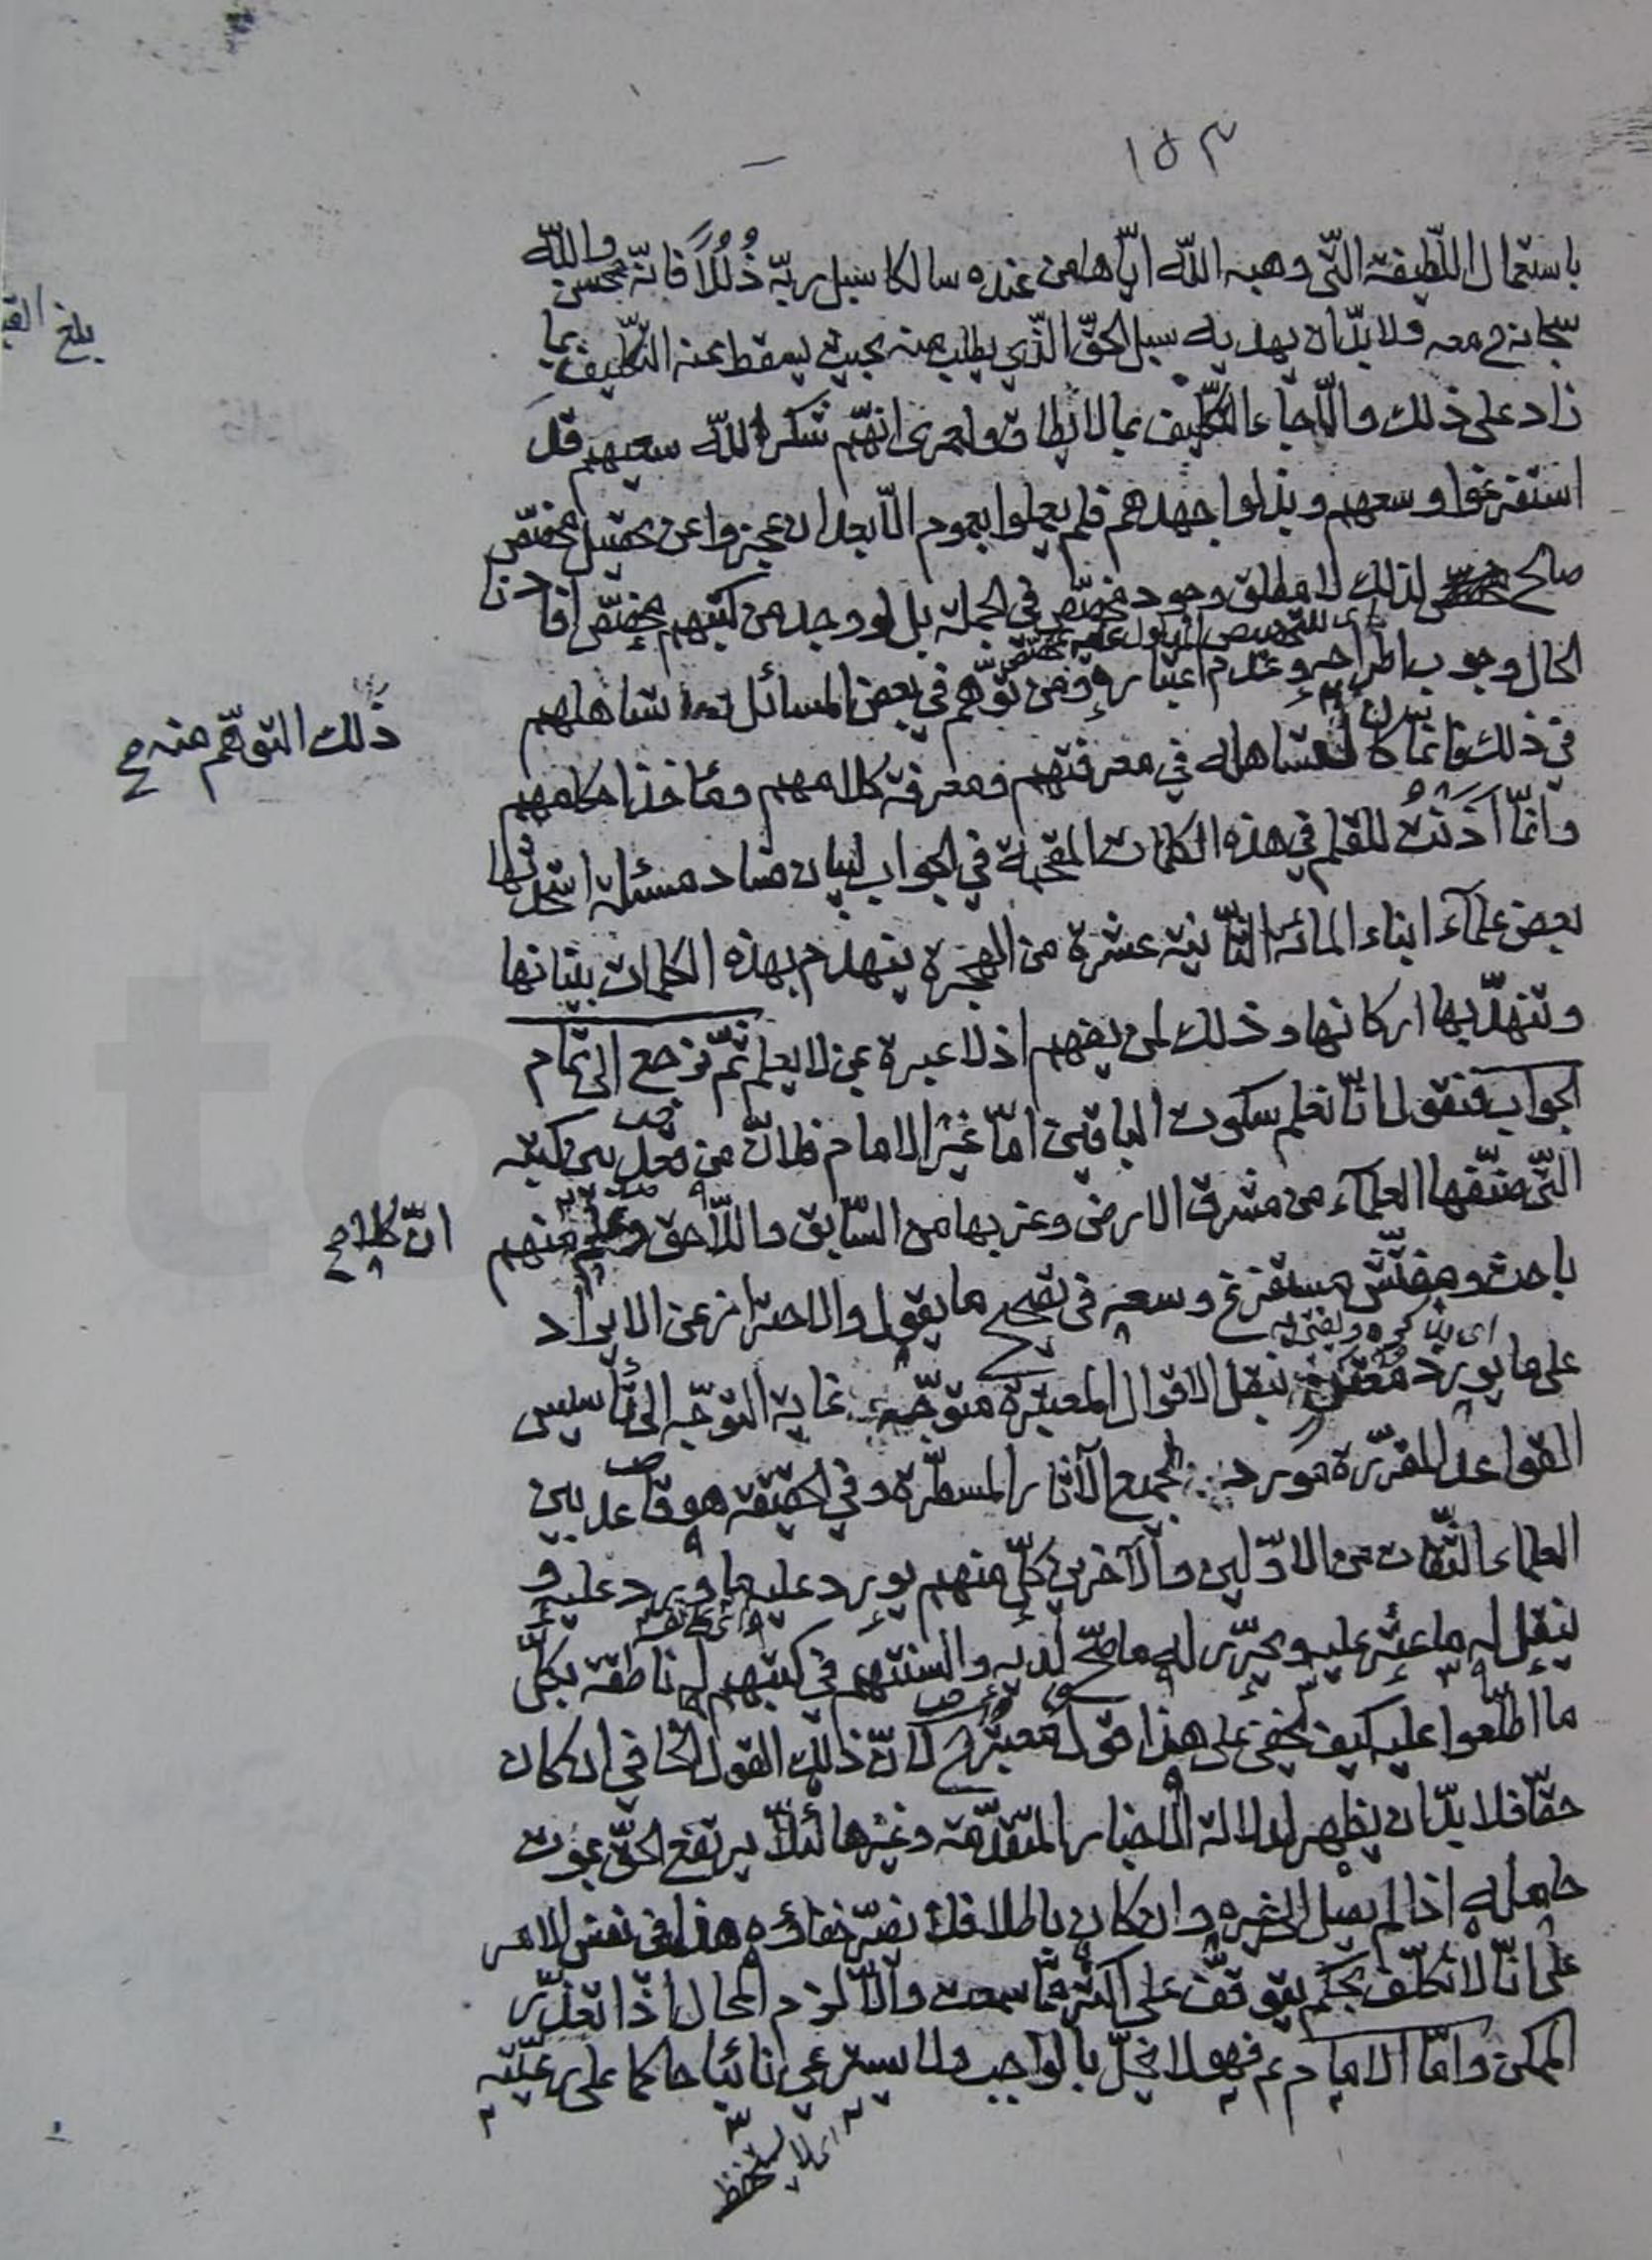 ١٥٣
باستعمال اللّطيفة الّتى وهبه اللّه ايّاها من عنده سالكا سبيل ربّه ذُلُلاً فانّه محسن واللّه
سبحانه مع معه ولا بدّ ان يهديه سبيل الحقّ الّذى يطلب منه بحيث يسقط عنه التكليف بما
زاد على ذلك والّا جاء التكليف بما لا يطاق ولعمرى انّهم شكر اللّه سعيهم قد
استفرغوا وسعهم وبذلوا جهدهم فلم يعملوا بعموم الّا بعد ان عجزوا عن تحصيل مخصّص
صالح لذلك لا مطلق وجود مخصّص فى الجملة بل لو وجد من كتبهم مخصّص افادنا
اى للتخصيص المدلول عليه بمخصّص
الحال وجوب اطراحه وعدم اعتباره ومن توهّم فى بعض المسائل تساهلهم
ذلك التوهّم منه
فى ذلك فانما كان لتساهله فى معرفتهم ومعرفة كلامهم ومأخذ احكامهم
وانّما اَذَنتُ للقلم فى هذه الكلمات المقحمة فى الجواب لبيان فساد مسئلة اتّخذتها
بعض علماء ابناء المائة الثّانية عشرة من الهجرة ينهدم بهذه الكلمات بنيانها
وتنهدّ بها اركانها وذلك لمن يفهم اذ لا عبرة بمن لا يعلم ثمّ نرجع الى تمام
الجواب فنقول انّا نعلم سكوت الباقين امّا غير الامام فلانّ من بين كتبه
الّتى صنّفها العلماء من مشرق الارض وغربها من السّابق واللّاحق وعلم منهم
انّ كلا
باحث ومفتّش مستفرغ وسعه فى تصحيح ما يقول والاحتراز عن الايراد
اى يذكره ويفتى به
على ما يورد معتن بنقل الاقوال المعتبرة متوجّه غاية التوجّه الى تأسيس
القواعد المقرّرة مورد لجميع الآثار المسطّرة وفى الحقيقة هو قاعد بين
العلماء الثّقات من الاوّلين والآخرين كلّ منهم يورد عليه ما ويرد عليه و
ينقل له ما عثر عليه ويحرّر له ما صحّ لديه والسنتهم فى كتبهم له ناطقة بكلّ
ما اطّلعوا عليه كيف يخفى على هذا قول معتبر لانّ ذلك القول الخافى ان كان
حقّا فلا بدّ ان يظهر لدلالة الاخبار المتقدّمة وغيرها لئلّا يرتفع الحقّ بموت
حامله اذا لم يصل الى غيره وان كان باطلا فلا يضرّ خفاؤه هذا فى نفس الامر
على انّا لا نكلّف بحكم يتوقّف على اكثر ممّا سمعت والّا لزم المحال اذا تعذّر
الممكن وامّا الامام ع فهو لا يخلّ بالواجب ولا يسترعى نائبا حاكما على رعيّته
اى لا يستحفظ